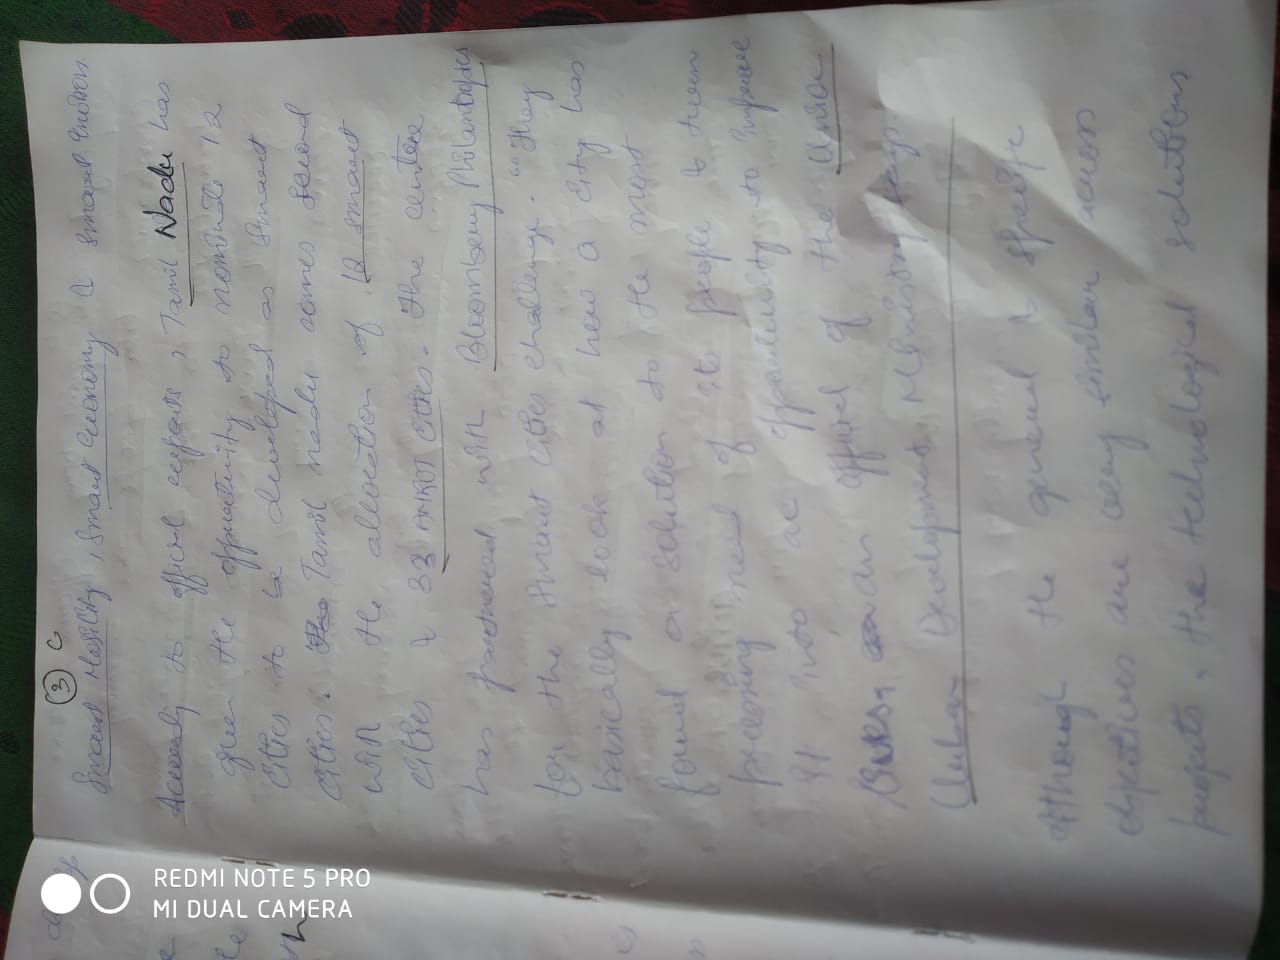 ③ C
Smart Mobility, Smart Economy & Smart Environ.
According to official reports, Tamil Nadu has
given the opportunity to nominate 12
cities to be developed as smart
cities. Tamil nadu comes second
with the allocation of 12 smart
cities & 33 AMRUT cities. The centre
has partnered with Bloomberg Philantropics
for the smart cities challenge. "They
basically look at how a city has
found a solution to the most
pressing need of its people & turn
it into an opportunity to improve
lives, an official of the Union
Urban Development Ministry says.
Although the general & specific
objectives are very similar across
projects, the technological solutions
REDMI NOTE 5 PRO
MI DUAL CAMERA